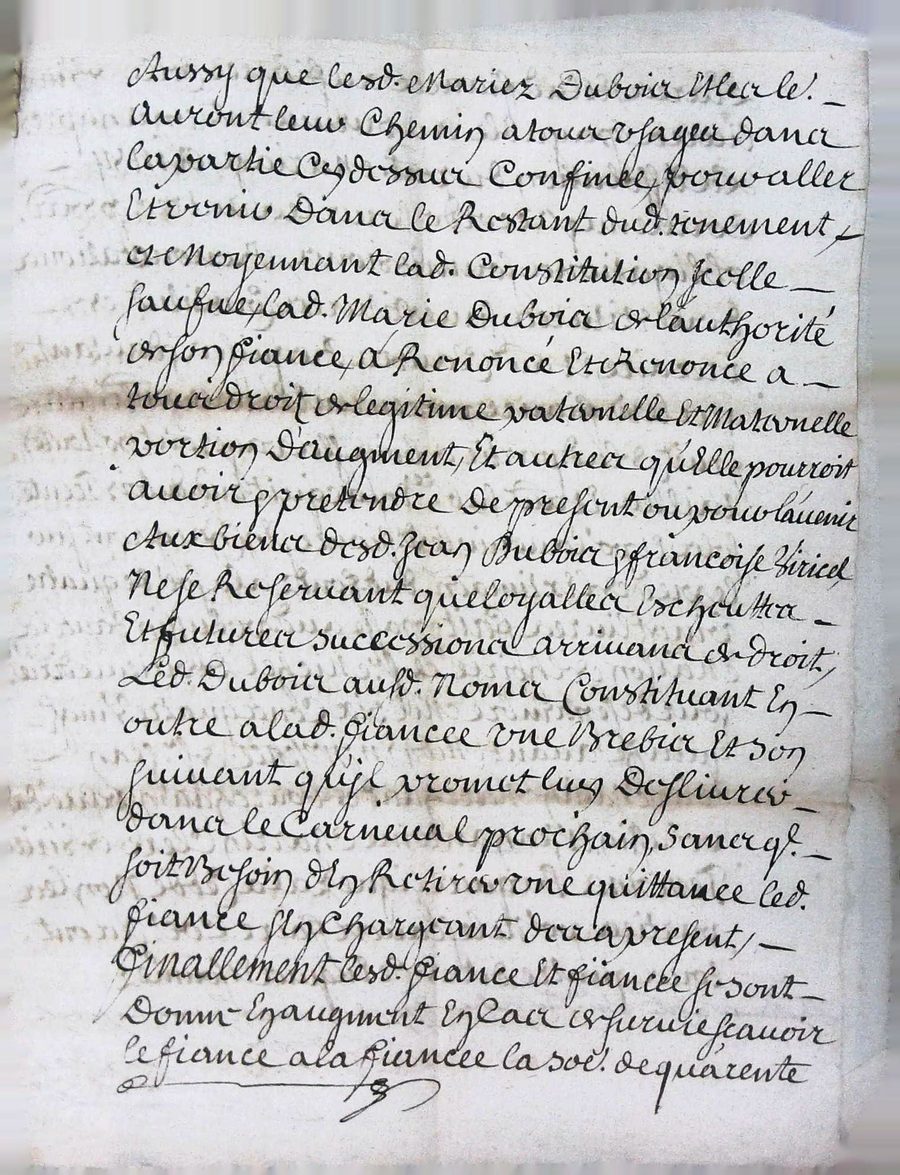 Aussy que lesd. Mariez Dubois Et les le. _
Auront leur Chemin a tous usages dans
la partie Cy dessus Confinee, pour aller
Et venir Dans le Restant dud. tenement,
et Moyennant lad. Constitution Jcelle _
saufue, lad. Marie Dubois de l'authorité
de son fiance, a Renoncé Et Renonce a _
tous droit de legitime paternelle Et Maternelle
portion D'augment, Et autres qu'Elle pourroit
avoir & pretendre De present ou pour l'avenir
Aux biens desd. Jean Dubois & francoise Viricel,
Ne se Reservant que loyalles Escheuttes _
Et futures successions arrivans de droit,
Led. Dubois ausd. Noms Constituant En _
outre a lad. fiancee une Brebis Et son
suivant qu'jl promet luy Deslivrer _
dans le Carneval prochain, Sans q.e _
soit Besoin d'En Retirer une quittance led.
fiance s'En Chargeant des a present, _
finallement lesd. fiance Et fiancee se sont _
Donne En augment En Cas de survie scavoir
le fiance a la fiancee la So.e de quarente